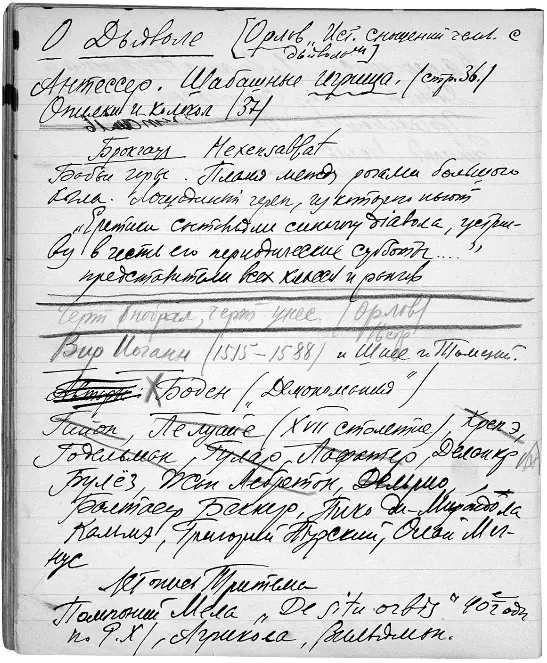 О Дьяволе [Орлов „Ист. сношений чел. с дьяволом"]
Антессер. Шабашные игрища. (стр. 36.)
и колкол (37)
Брокгауз Hexensabbat
Бабьи горы. Пламя между рогами большого
козла. Лошадиный череп, из которого пьют
„Еретики составляли синагогу диавола, устраи-
ву в честь его периодические субботы....",
представители всех классов и рангов
Черт побрал, черт унес. (Орлов)
Вир Иоганн (1515–1588) и
Боден („Демономания")
Гийом, Пелуайе (XVII столетие), Коспэ,
Годельман, Гулар, Лафатер, Деланкр
Булёз, Жюль Лебретон, Дельрио,
Бальтасар Беккер, Пико де-Мирандола
Кальмэ, Григорий Турский, Олай Маг-
нус
Летопись Тритема
Помпоний Мела „De situ orbis" 40й год
п. Р. Х), Агрикола,